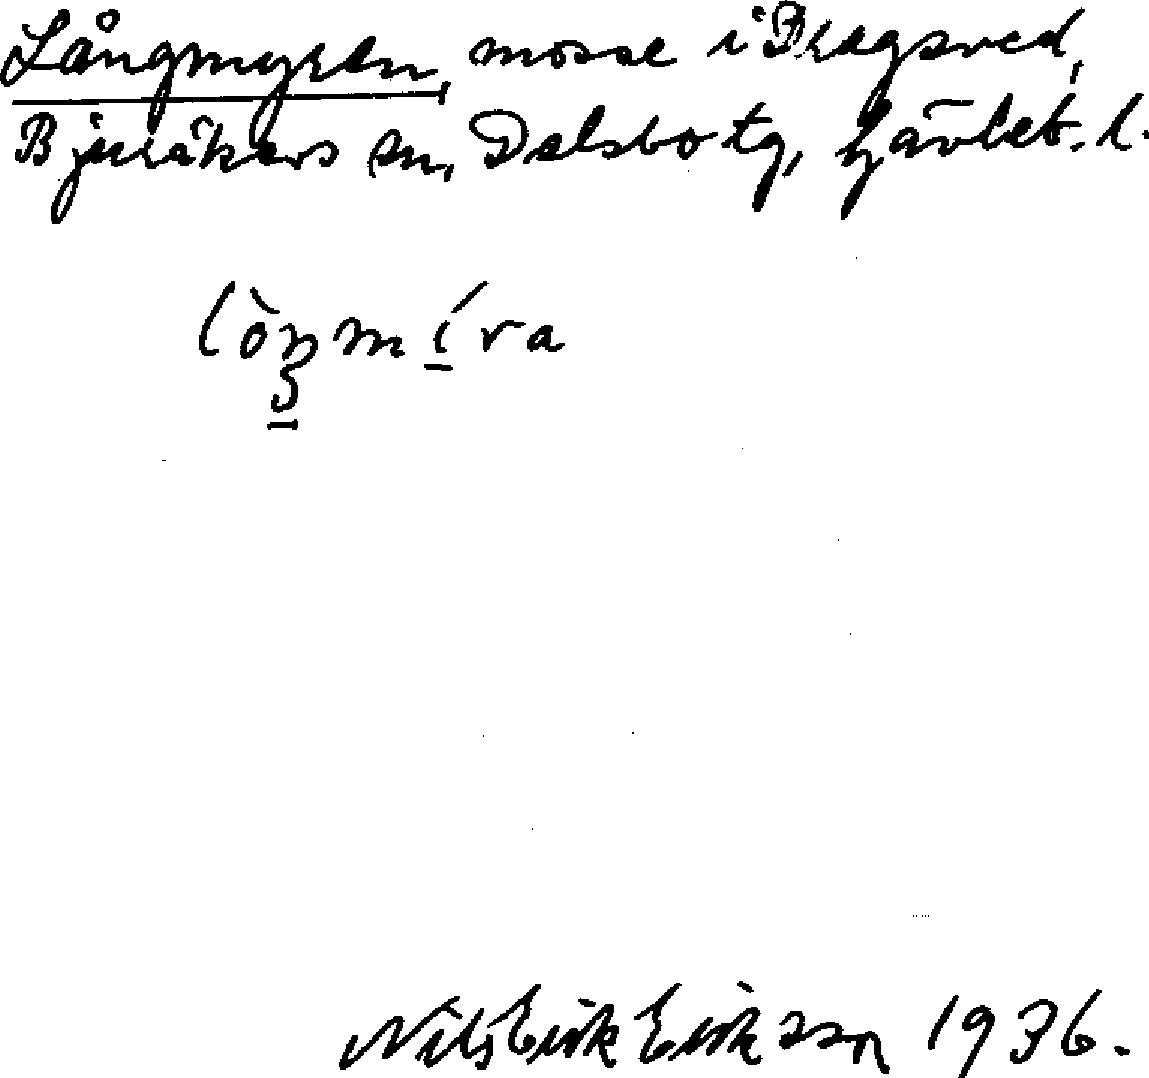 Långmyren, mosse i Bragsved,
Bjuråkers sn, Delsbo tg, Gävleb. l.
lòŋmíra
Nils Erik Eriksson 1936.